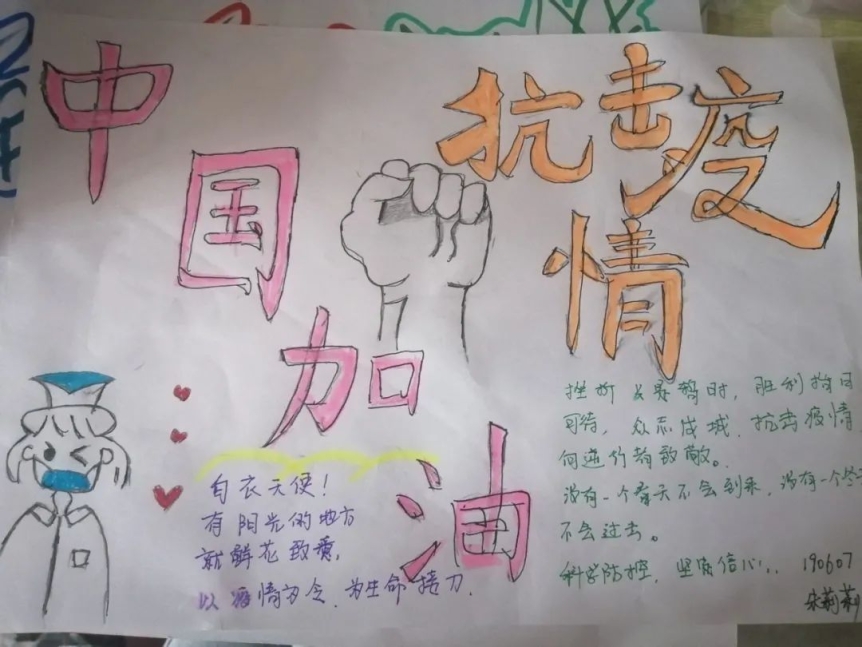 中国加油
抗击疫情
白衣天使！
有阳光的地方
就鲜花致敬，
以疫情为令，为生命接力.
挫折 是暂时，胜利指日
可待，众志成城．抗击疫情
向逆行者致敬。
没有一个春天不会到来，没有一个
不会过去。
科学防控，坚定信心...
190607
朱莉莉